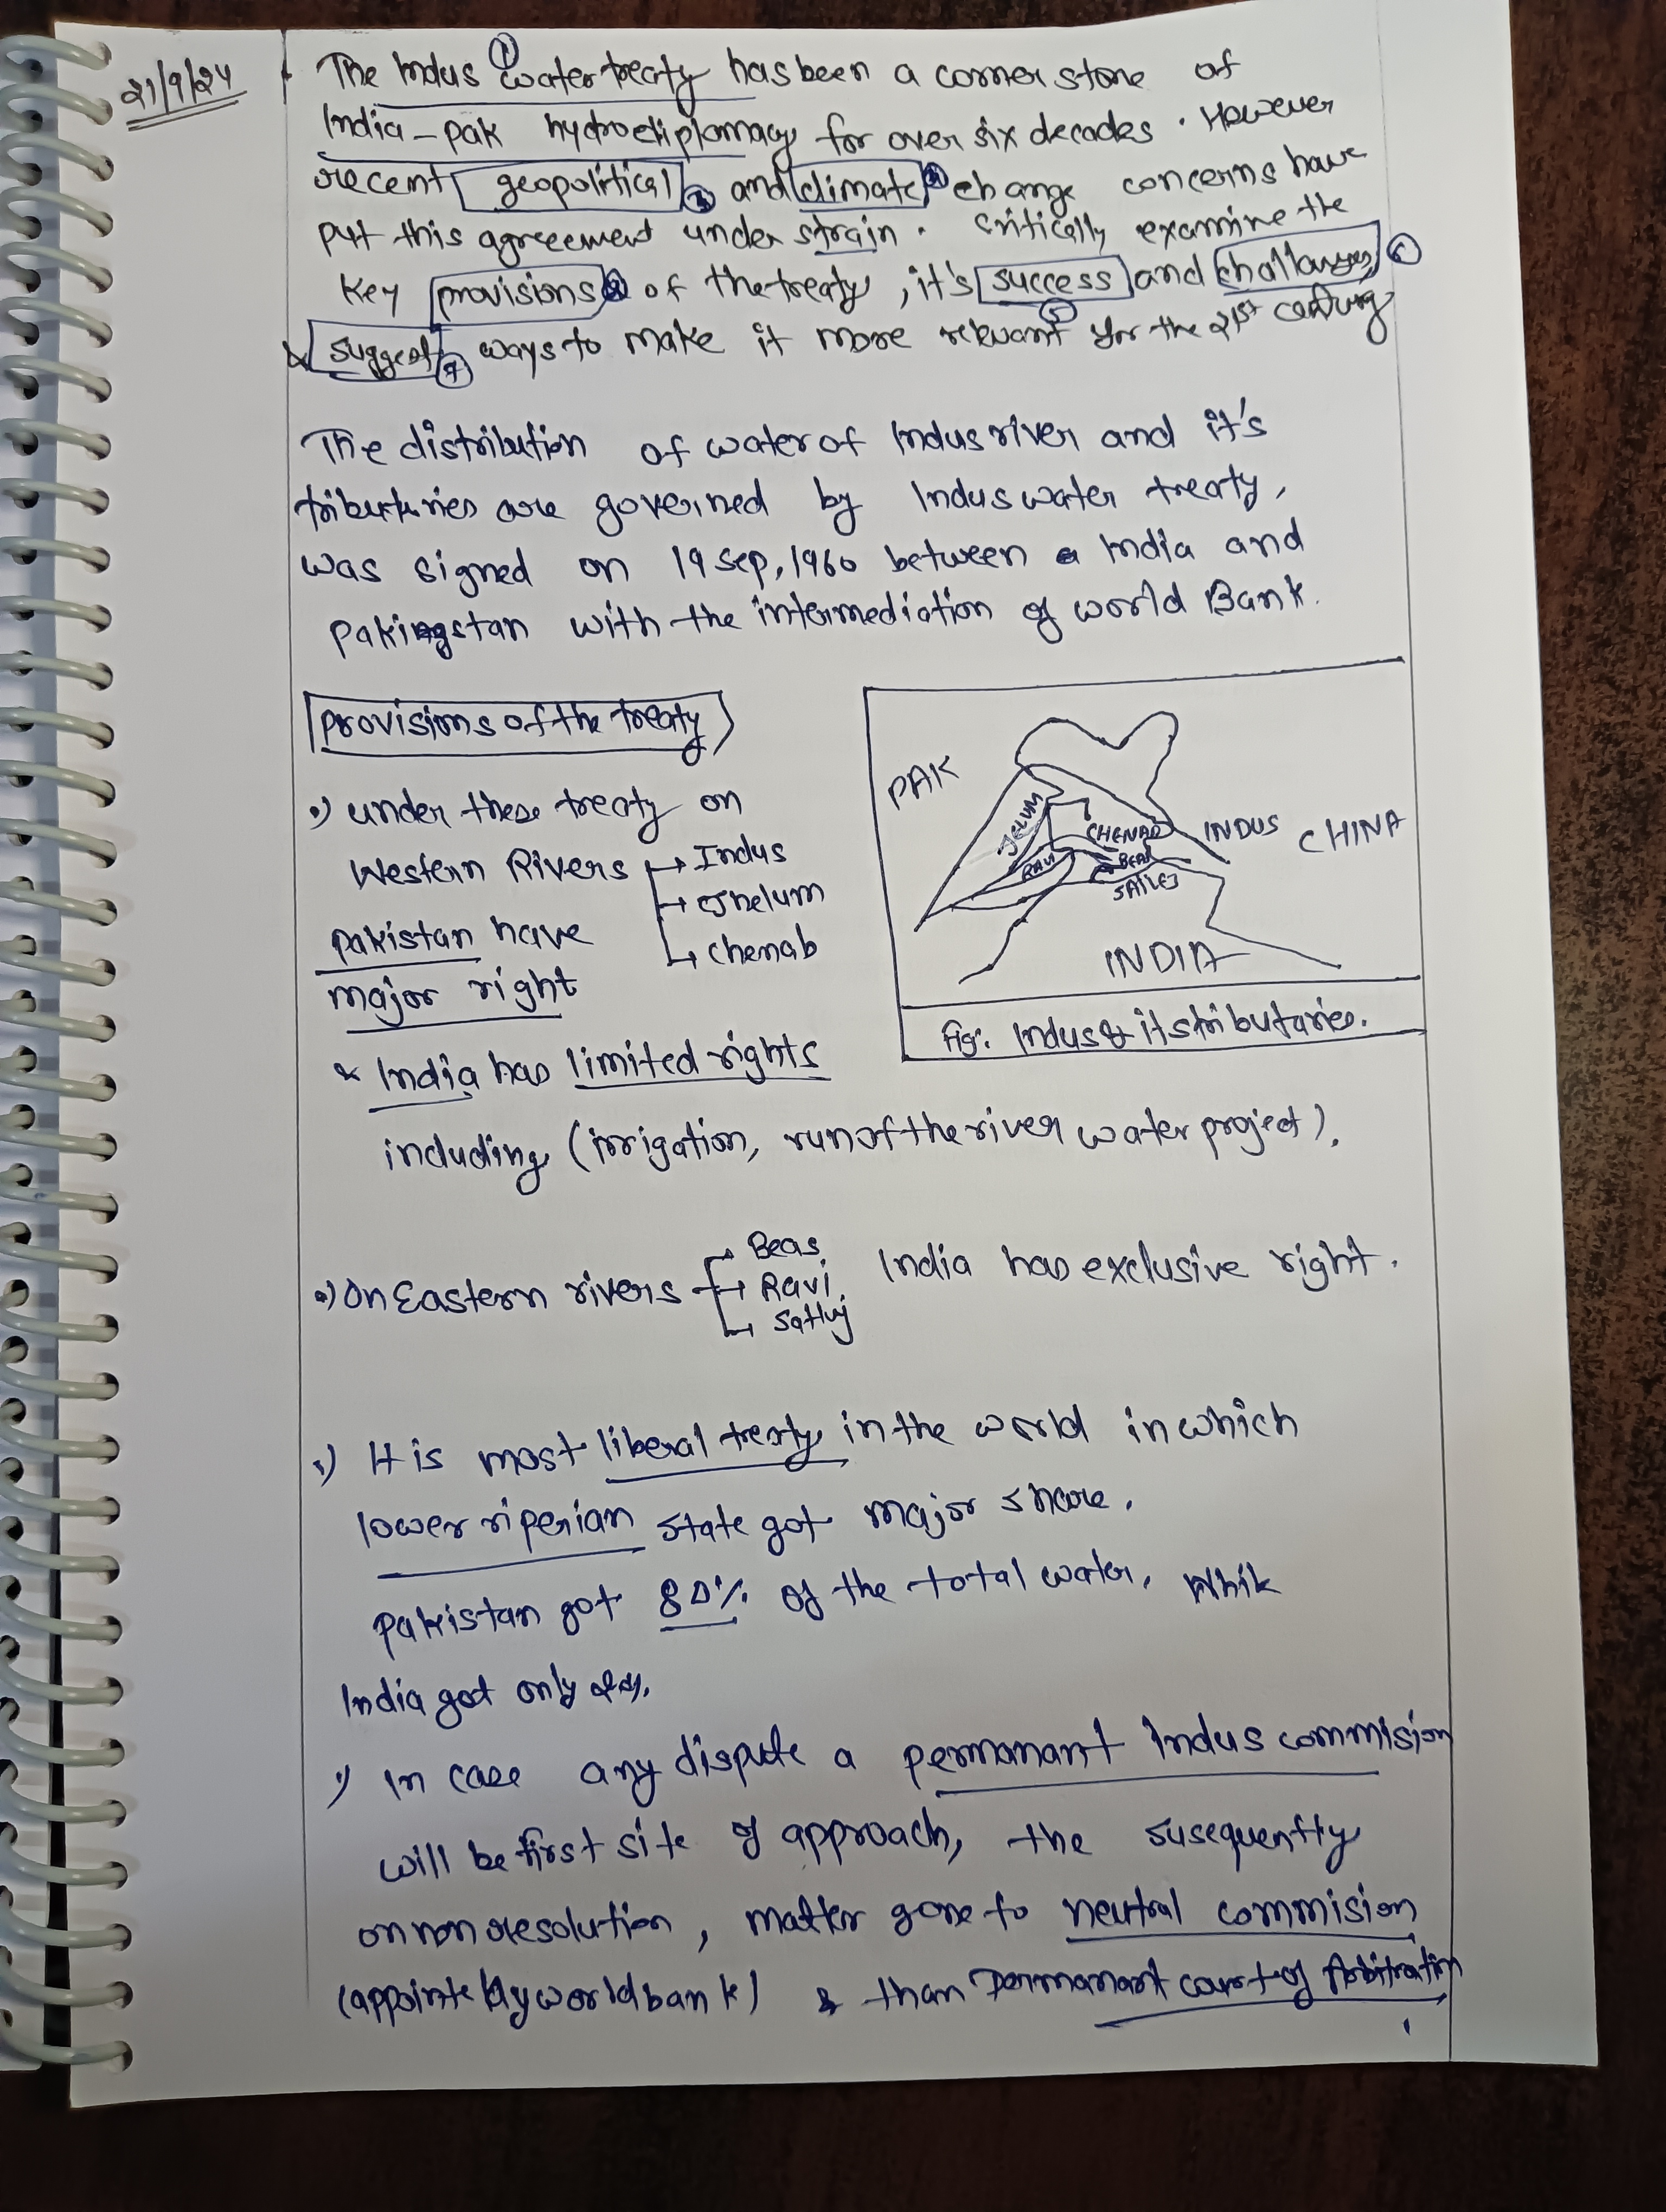 21/9/24
The Indus water treaty has been a corner stone of
India-pak hydrodiplomacy for over six decades. However
recent geopolitical and climate change concerns have
put this agreement under strain. Critically examine the
key provisions of the treaty, it's success and challanges
& suggest ways to make it more relevant for the 21st century
The distribution of water of Indus river and it's
tributuries are governed by Indus water treaty,
was signed on 19 sep, 1960 between India and
Pakingstan with the intermediation of world Bank.
provisions of the treaty
•) under these treaty on
Western Rivers → Indus
→ Jhelum
→ chenab
pakistan have
major right
& India has limited rights
including (irrigation, run of the river water project).
PAK
JELUM
CHENAB
INDUS
CHINA
RAVI
BEAS
SATLEJ
INDIA
Fig: Indus & its tributaries.
•) On Eastern rivers → Beas
→ Ravi
→ Satluj
India has exclusive right.
•) It is most liberal treaty in the world in which
lower riperian state got major share.
pakistan got 80% of the total water, While
India got only
•) In case any dispute a permanant Indus commision
will be first site of approach, the susequently
on non resolution, matter gone to neutral commision
(appointe by world bank) & than Permanant court of Arbitration